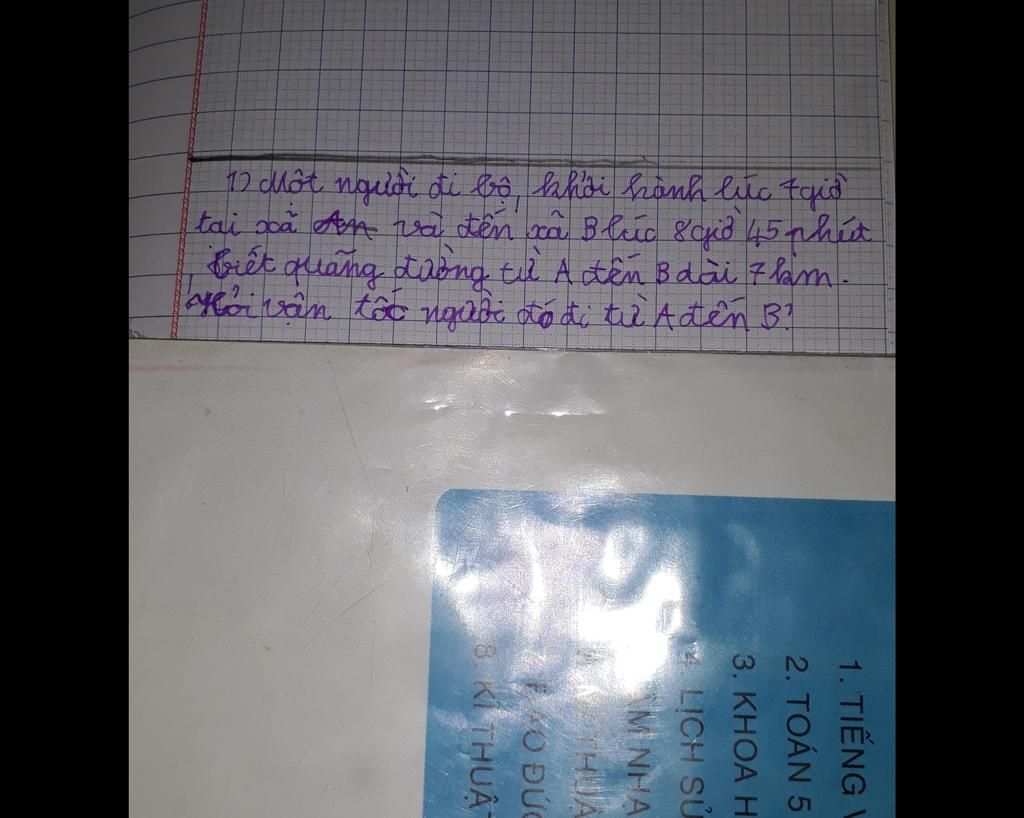 1) Một người đi bộ, khởi hành lúc 7 giờ
tại xã và đến xã B lúc 8 giờ 45 phút
, biết quãng đường từ A đến B dài 7 km.
Hỏi vận tốc người đó đi từ A đến B?
1. TIẾNG V
2. TOÁN 5
3. KHOA H
4. LỊCH SỬ
ÂM NHẠ
THUẬ
ĐẠO ĐỨC
8. KĨ THUẬT